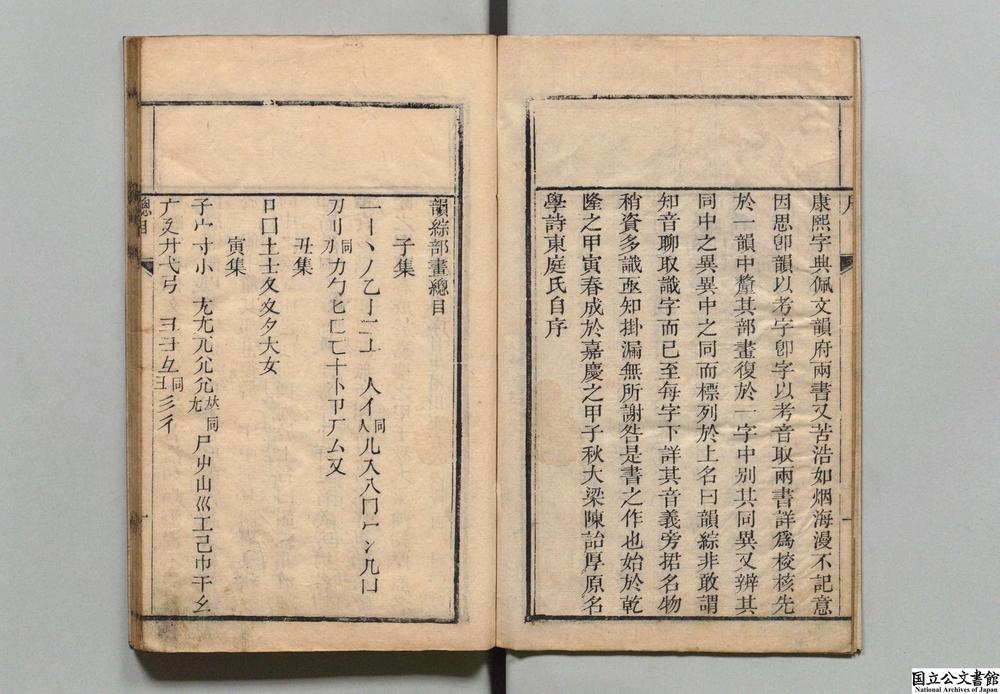 康熙字典佩文韻府兩書又苦浩如烟海漫不記意
因思卽韻以考字卽字以考音取兩書詳爲校核先
於一韻中釐其部畫復於一字中別其同異又辨其
同中之異異中之同而標列於上名曰韻綜非敢謂
知音聊取識字而已至每字下詳其音義旁捃名物
稍資多識亟知掛漏無所謝咎是書之作也始於乾
隆之甲寅春成於嘉慶之甲子秋大梁陳詒厚原名
學詩東庭氏自序
韻綜部畫總目
子集
一丨丶丿乙亅二亠 人亻同儿入八冂冖冫几凵
刀刂同力勹匕匚匸十卜卩厂厶又
丑集
口囗土士夂夊夕大女
寅集
子宀寸小 尢尣同尸屮山巛工己巾干幺
广廴廾弋弓 彐彑同彡彳
總目
一
国立公文書館
National Archives of Japan